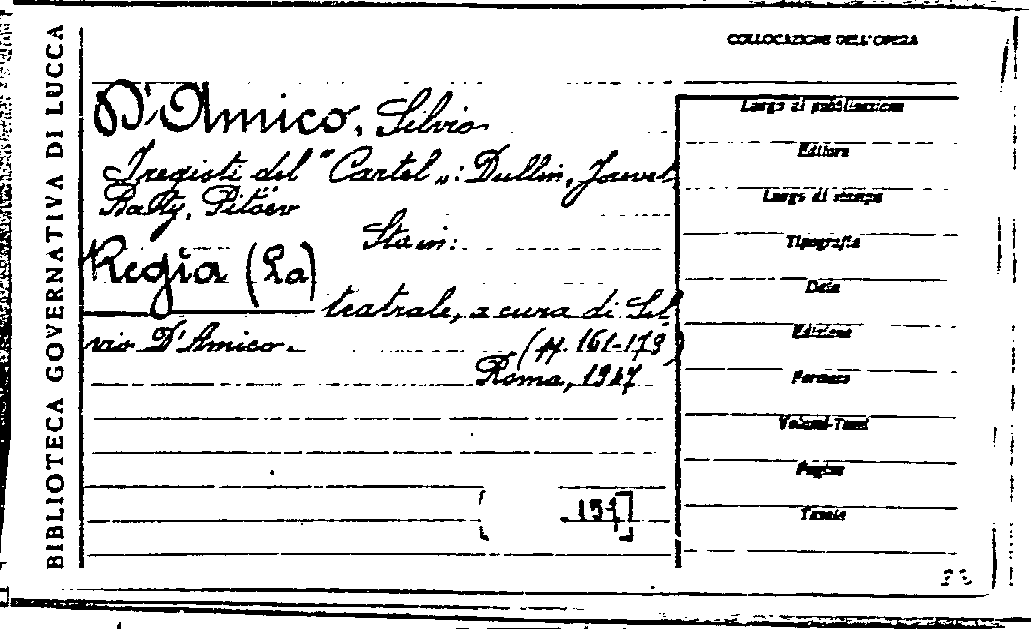 BIBLIOTECA GOVERNATIVA DI LUCCA
COLLOCAZIONE DELL'OPERA
D'Amico, Silvio
I registi del "Cartel": Dullin, Jouvet,
Baty, Pitöev
Sta in:
Regia (La)
teatrale, a cura di Sil
vio D'Amico.
(pp. 161-179)
Roma, 1947
Luogo di pubblicazione
Editore
Luogo di stampa
Tipografia
Data
Edizione
Formato
Volumi-Tomi
Pagine
Tavole